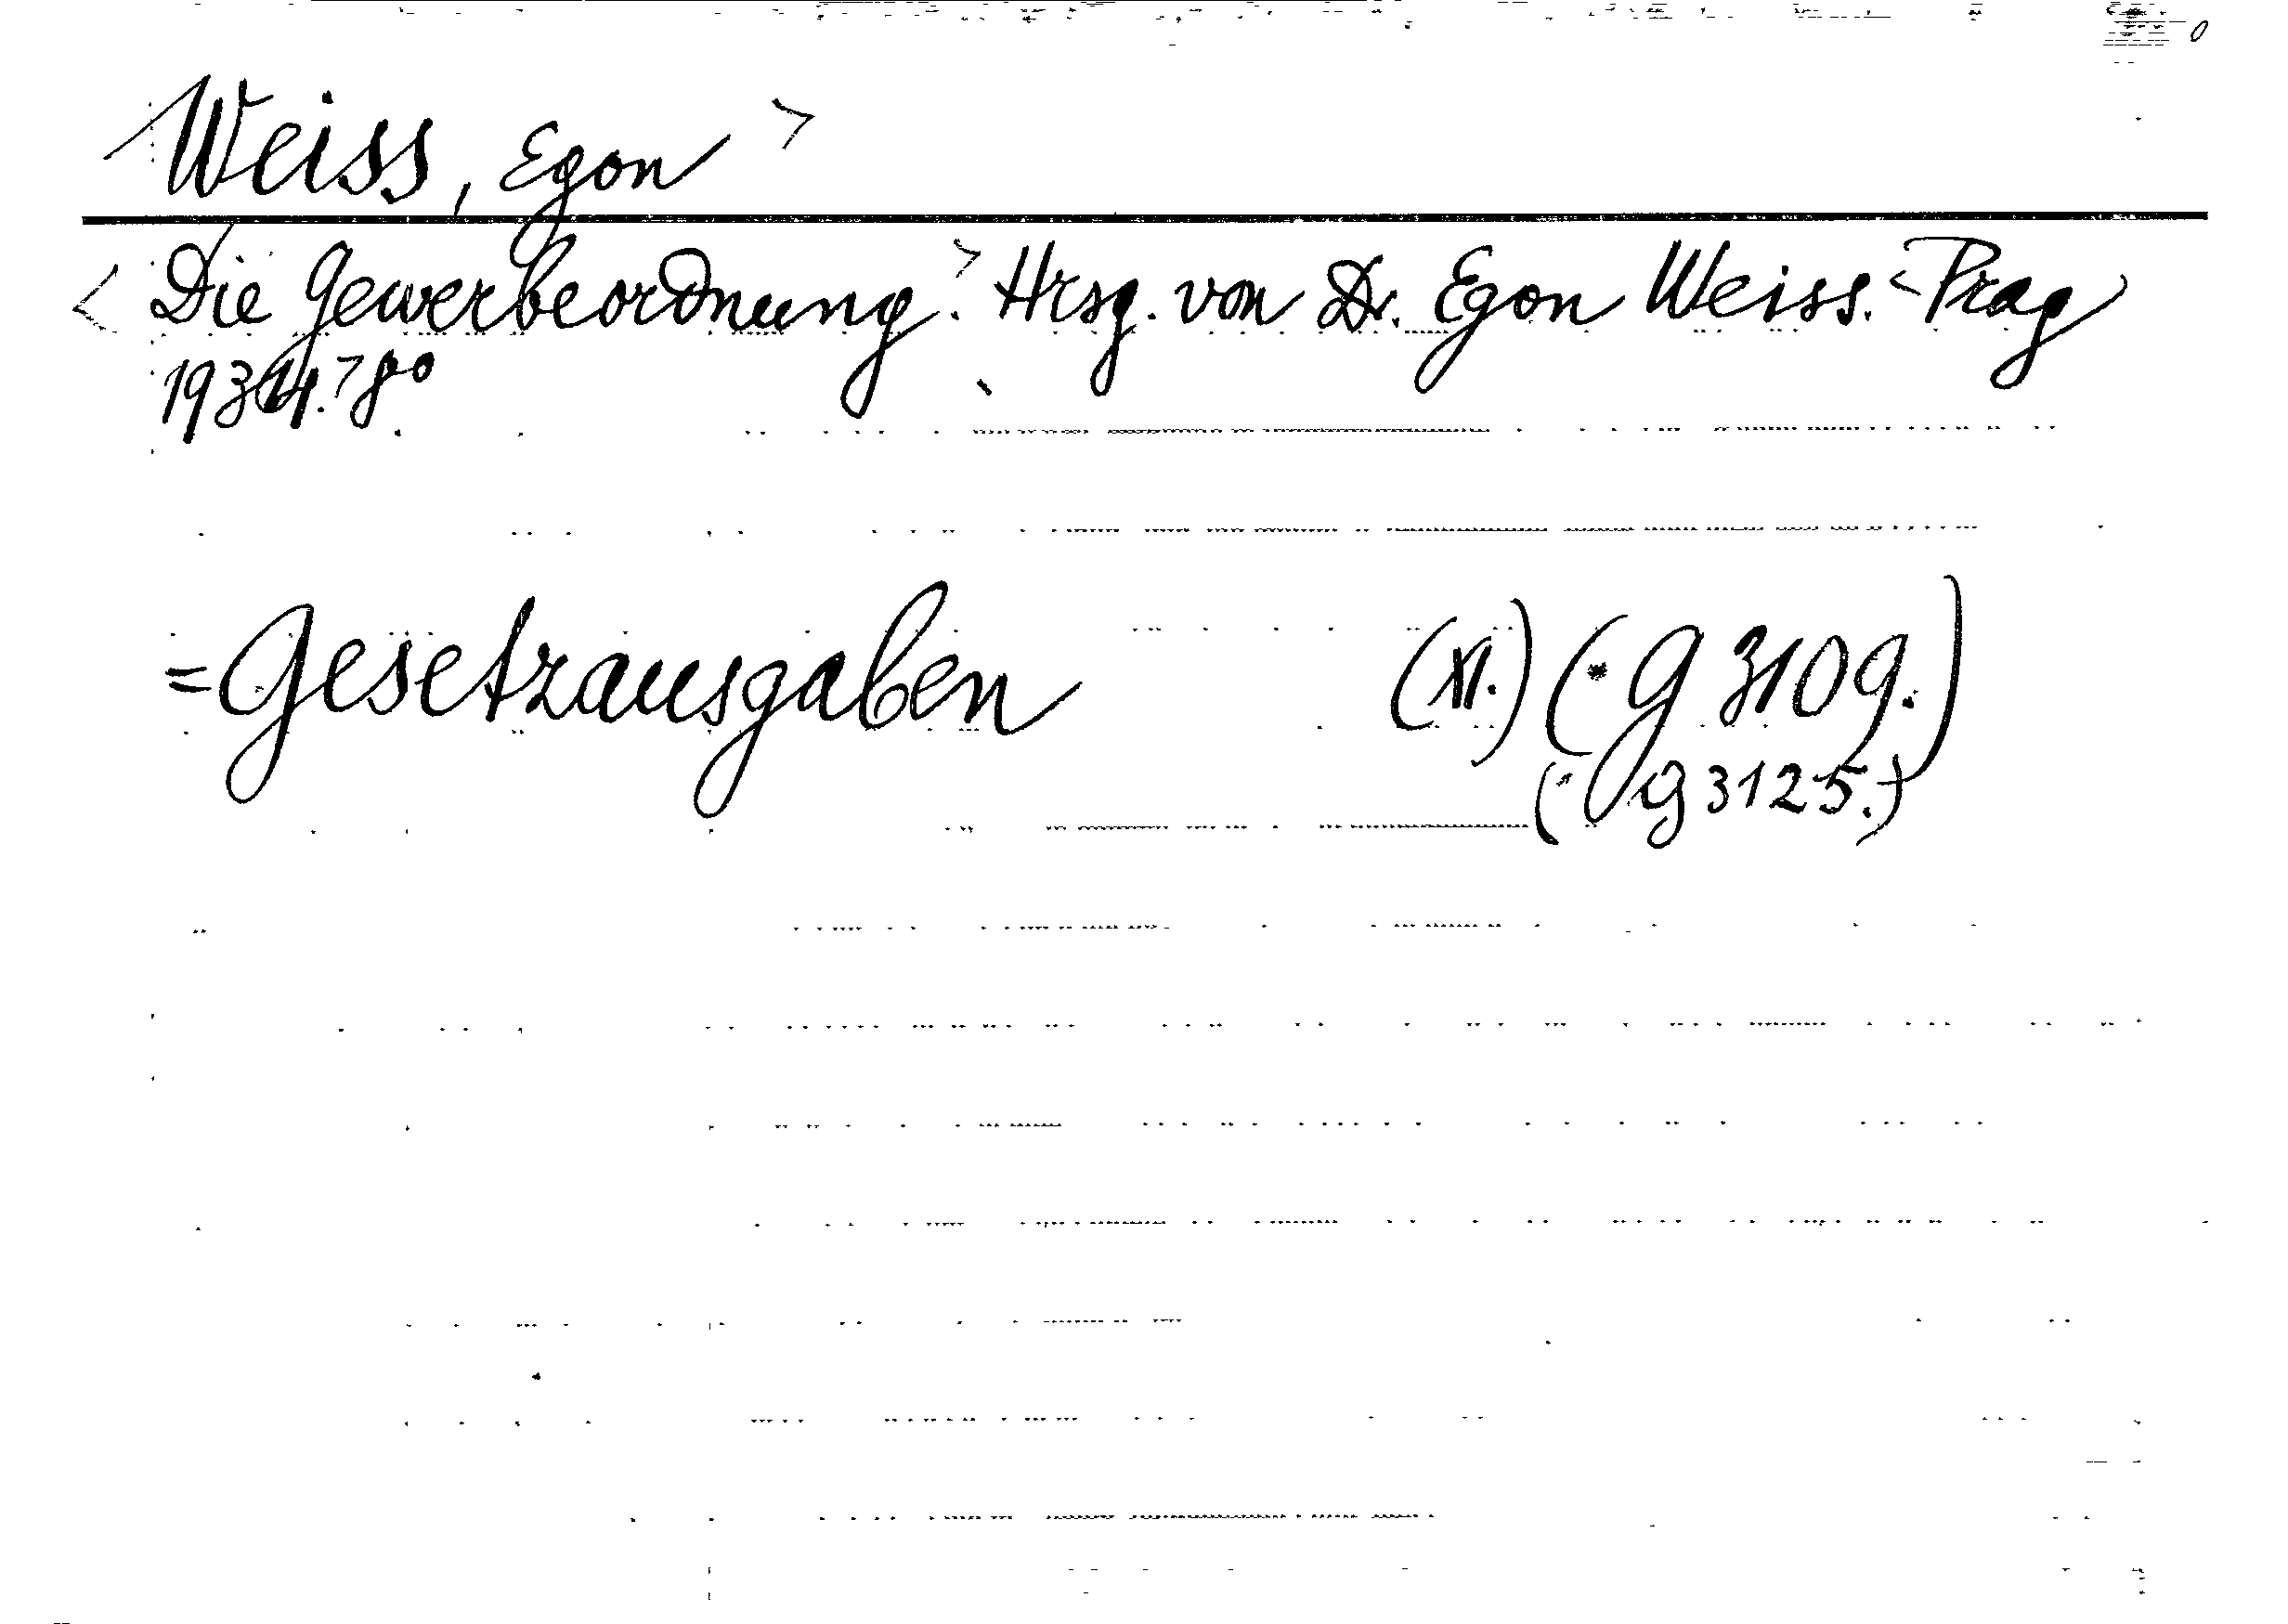 Weiss, Egon >
< Die Gewerbeordnung. > Hrsg. von Dr. Egon Weiss. < Prag
1934. > 8°
= Gesetzausgaben (XI.) (* G 3109.)
(* G 3125.)